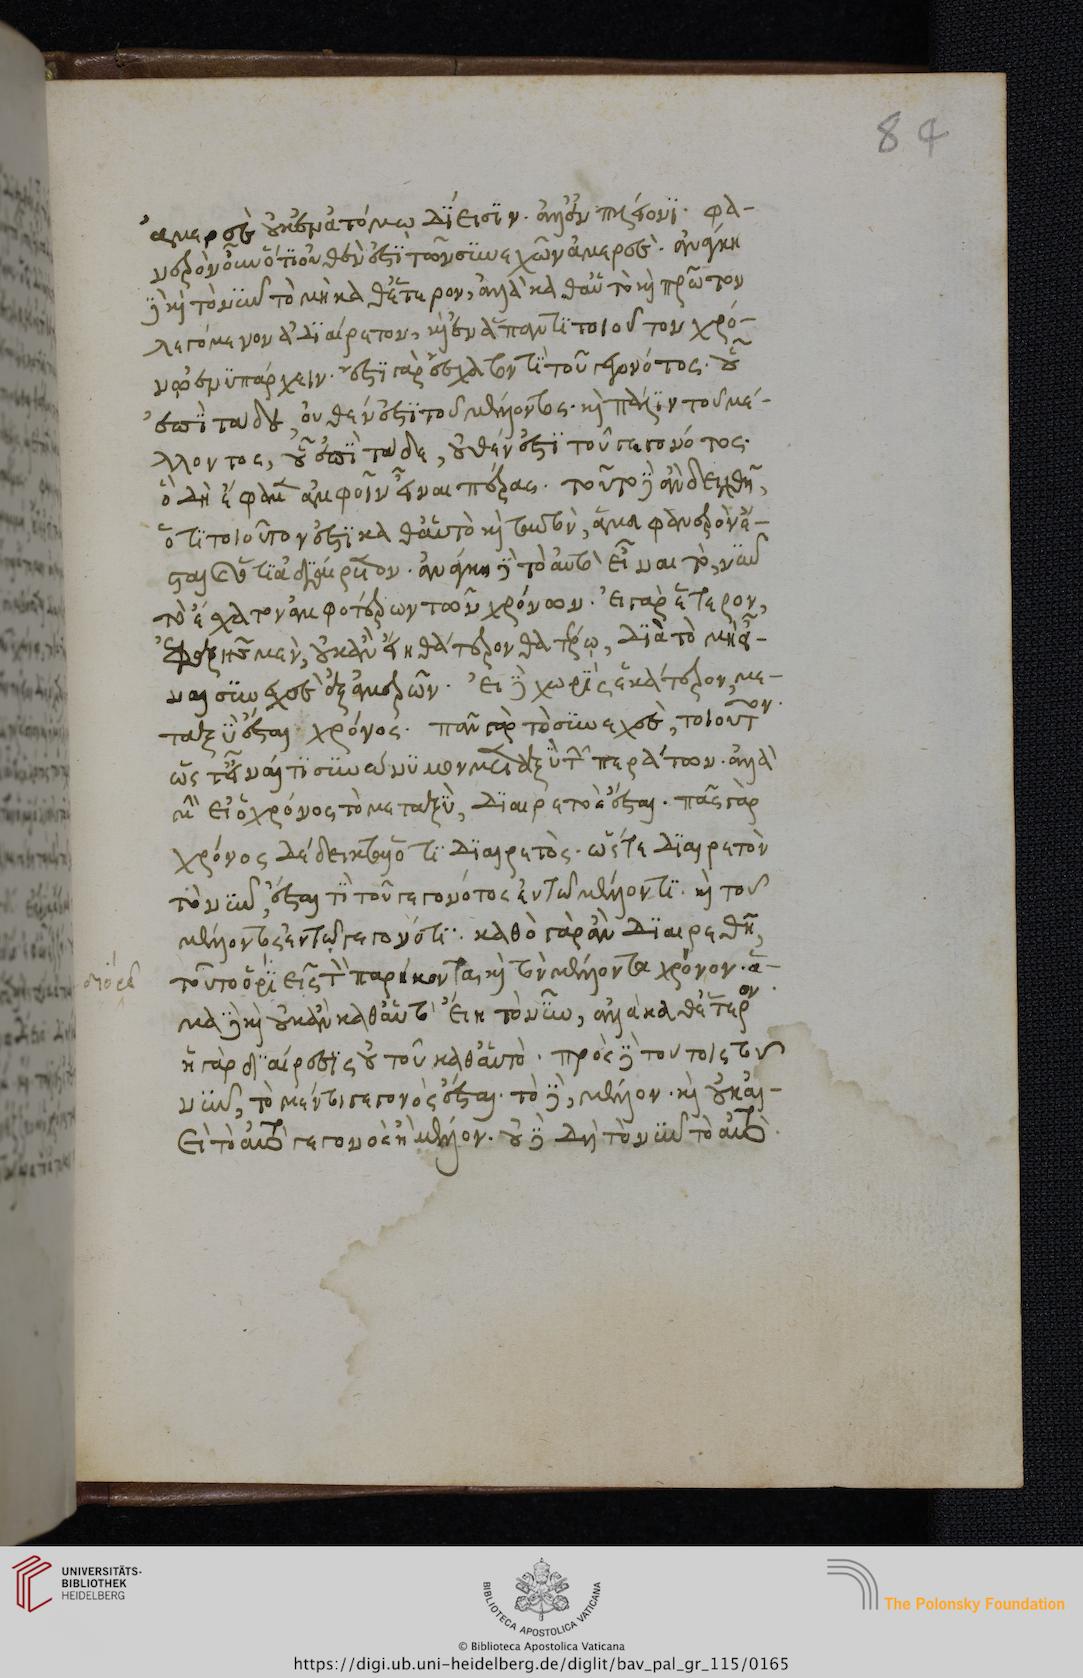 84
ἀμερσὲς οὐκ ἐν ἀτόμῳ δίεισιν. ἀλλ' ἐν πλείονι. φα-
νερὸν οὖν ὅτι οὐθέν ἐστι τῶν συνεχῶν ἀμερές. ἀνάγκη
δὲ καὶ τὸ νῦν τὸ μὴ καθ' ἕτερον, ἀλλὰ καθ' αὑτὸ καὶ πρῶτον
λεγόμενον ἀδιαίρετον, καὶ ἐν ἅπαντι τοιοῦτον χρό-
νῳ ἐνυπάρχειν. ἔστι γὰρ ἔσχατόν τι τοῦ γεγονότος. οὗ
ἐπὶ τάδε οὐθέν ἐστι τοῦ μέλλοντος. καὶ πάλιν τοῦ μέ-
λλοντος, οὗ ἐπὶ τάδε, οὐθέν ἐστι τοῦ γεγονότος.
ὃ δὴ ἔφαμεν ἀμφοῖν εἶναι πέρας. τοῦτο δὲ ἂν δειχθῇ,
ὅτι τοιοῦτόν ἐστι καθ' αὑτὸ καὶ ταὐτὸν, ἅμα φανερὸν ἔ-
σται καὶ ὅτι ἀδιαίρετον. ἀνάγκη δὲ τὸ αὐτὸ εἶναι τὸ, νῦν
τὸ ἔσχατον ἀμφοτέρων τῶν χρόνων. εἰ γὰρ ἕτερον,
ἐφεξῆς μὲν, οὐκ ἂν εἴη θάτερον θατέρῳ, διὰ τὸ μὴ εἶ-
ναι συνεχὲς ἐξ ἀμερῶν. εἰ δὲ χωρὶς ἑκάτερον, με-
ταξὺ ἔσται χρόνος. πᾶν γὰρ τὸ συνεχὲς, τοιοῦτον
ὥστ' εἶναί τι συνώνυμον μεταξὺ τῶν περάτων. ἀλλὰ
μὴν εἰ ὁ χρόνος τὸ μεταξὺ, διαιρετὸς ἔσται. πᾶς γὰρ
χρόνος δέδεικται ὅτι διαιρετὸς. ὥστε διαιρετὸν
τὸ νῦν, ἔσται τι τοῦ γεγονότος ἐν τῷ μέλλοντι. καὶ τοῦ
μέλλοντος ἐν τῷ γεγονότι. καθὸ γὰρ ἂν διαιρεθῇ,
τοῦτο ὁριεῖ εἰς τὸν παρήκοντα, καὶ τὸν μέλλοντα χρόνον. ἅ-
μα δὲ καὶ οὐκ ἂν καθ' αὑτὸ εἴη τὸ νῦν, ἀλλὰ καθ' ἕτερον
ἡ γὰρ διαίρεσις οὐ τοῦ καθ' αὑτὸ. πρὸς δὲ τούτοις τοῦ
νῦν, τὸ μέν τι γεγονὸς ἔσται. τὸ δὲ, μέλλον. καὶ οὐκ ἀι-
εὶ τὸ αὐτὸ γεγονὸς ἢ μέλλον. οὐδὲ δὴ τὸ νῦν τὸ αὐτὸ
UNIVERSITÄTS-
BIBLIOTHEK
HEIDELBERG
BIBLIOTECA APOSTOLICA VATICANA
The Polonsky Foundation
© Biblioteca Apostolica Vaticana
https://digi.ub.uni-heidelberg.de/diglit/bav_pal_gr_115/0165